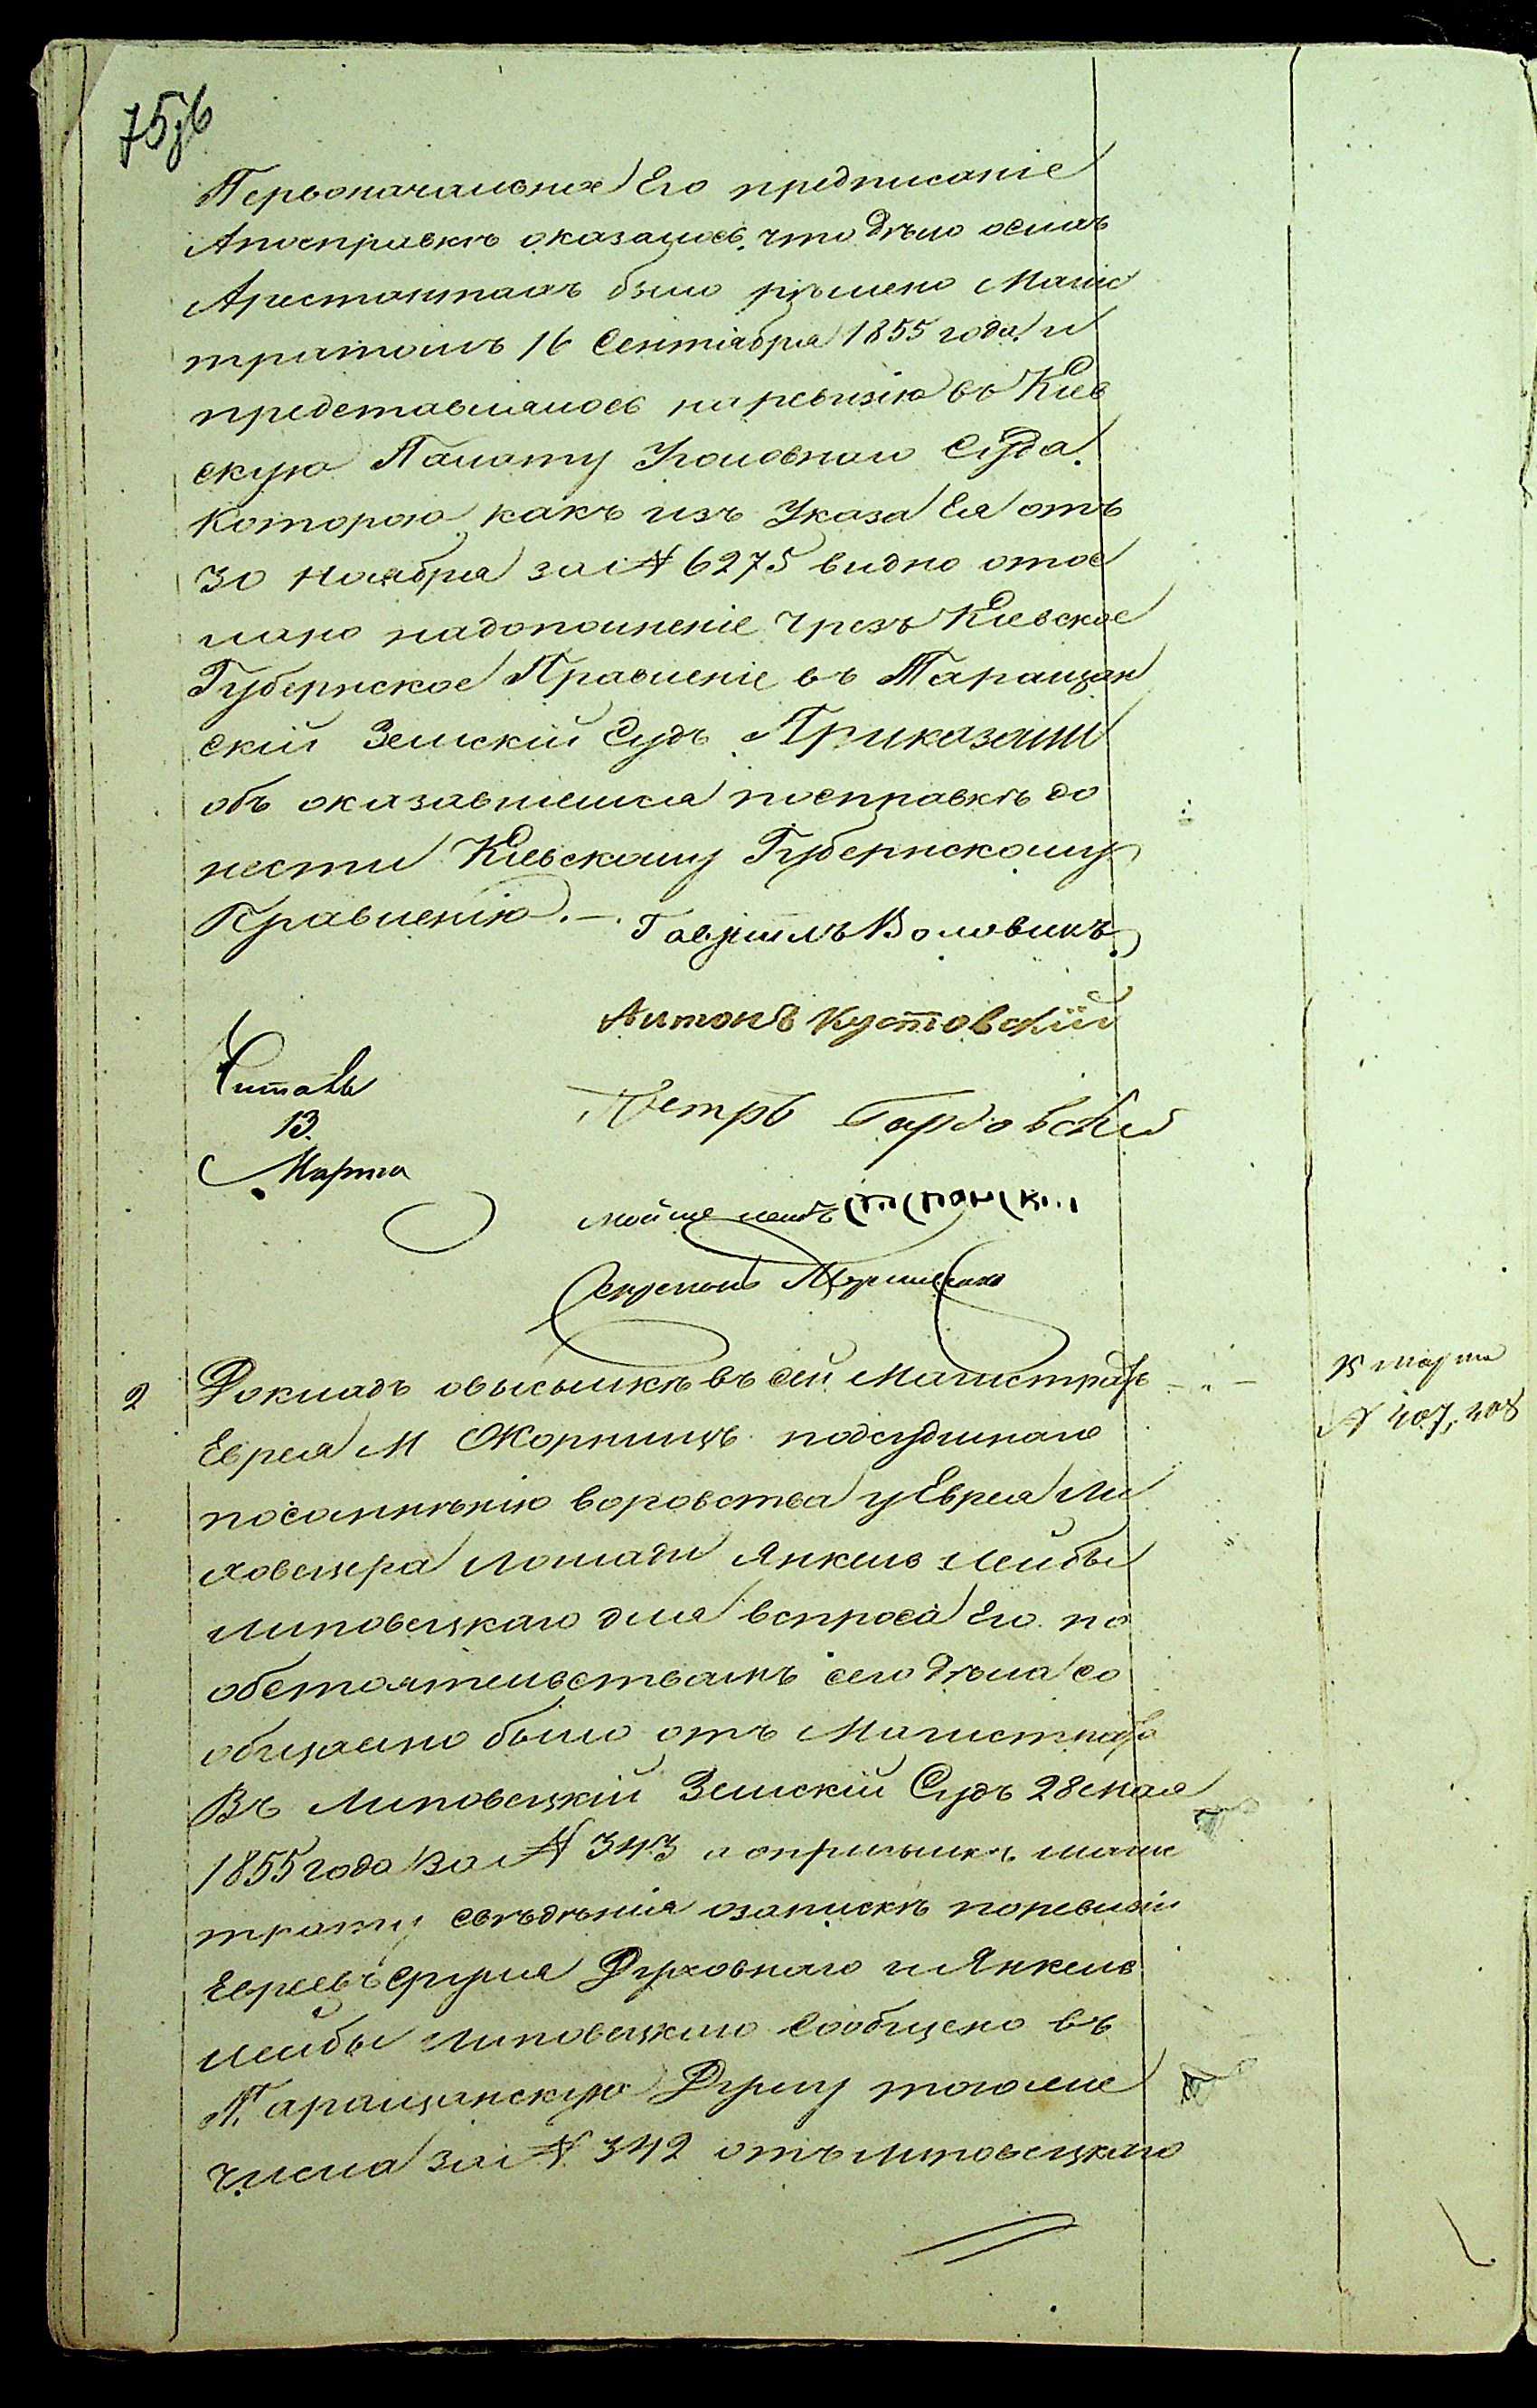 75об
Первоначальное Его предписаніе
Апосправкѣ оказалось, что дѣло осихъ
Арестантахъ было рѣшено Магис
тратомъ 16 Сентября 1855 года и
представлялось наревизію въ Кіев
скую Палату Уголовнаго Суда
Которою какъ изъ Указа Ея отъ
30 Ноября за N 6275 видно отос
лано надополненіе чрезъ Кіевское
Губернское Правленіе въ Таращан
скій Земскій Судъ Приказали
объ оказавшемся посправкѣ до
нести Кіевскому Губернскому
Правленію. —
Гаврiилъ Воловикъ
Антонъ Кустовскій
Читалъ
13
Марта
Петръ Гардовскій
мойше лейбъ
Секретарь
2 Докладъ овысылкѣ въ сей Магистратъ
15 марта
N 407, 408
Еврея М подсудимаго
посомнѣнію воровства у Еврея Ли
ховецера лошади Янкеля Лейбы
Липовецкаго для вспроса Его по
обстоятельствамъ сего дѣла со
общаемо было отъ Магистрата
Въ Липовецкій Земскій Судъ 28 мая
1855 года за N 343 и оприсылкѣ магис
трату свѣдѣнія озапискѣ поревизіи
Евреевъ Сруля Духовнаго и Янкеля
Лейбы Липовецкаго сообщено въ
Таращанскую Думу тогоже
числа за N 342 отъ Липовецкаго